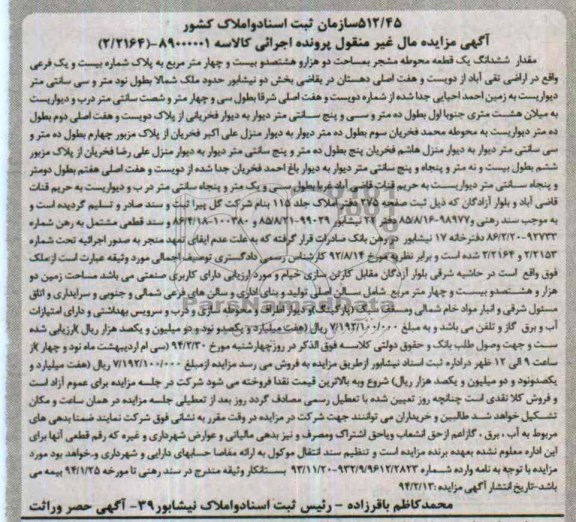 ۵۱۲/۴۵سازمان ثبت اسنادواملاک کشور
آگهی مزایده مال غیر منقول پرونده اجرائی کالاسه ۸۹۰۰۰۰۱-(۲/۲۱۶۴)
مقدار ششدانگ یک قطعه محوطه مشجر بمساحت دو هزارو هشتصدو بیست و چهار متر مربع به پلاک شماره بیست و یک فرعی
واقع در اراضی تقی آباد از دویست و هفت اصلی دهستان در بقاضی بخش دو نیشابور حدود ملک شمالا بطول نود متر و سی سانتی متر
دیواریست به زمین احمد احیایی جدا شده از شماره دویست و هفت اصلی شرقا بطول سی و چهار متر و شصت سانتی متر درب و دیواریست
به میلان هشت متری جنوبا اول بطول ده متر و سی و پنج سانتی متر دیوار به دیوار فخریانی از پلاک دویست و هفت اصلی دوم بطول
ده متر دیواریست به محوطه محمد فخریان سوم بطول ده متر دیوار به دیوار منزل علی اکبر فخریان از پلاک مزبور چهارم بطول ده متر و
سی سانتی متر دیوار به دیوار منزل هاشم فخریان پنج بطول ده متر و پنج سانتی متر دیوار به دیوار منزل علی رضا فخریان از پلاک مزبور
ششم بطول بیست و نه متر و پنجاه و پنج سانتی متر دیوار به دیوار باغ احمد فخریان جدا شده از دویست و هفت اصلی هفتم بطول دومتر
و پنجاه سانتی متر دیواریست به حریم قنات قاضی آباد غربا بطول سی و یک متر و پنجاه سانتی متر در ب و دیواریست به حریم قنات
قاضی آباد و بلوار آزادگان که ذیل ثبت صفحه ۲۷۵ دفتر املاک جلد ۱۱۵ بنام شرکت گل پیرا ثبت و سند صادر و تسلیم گردیده است و
به موجب سند رهنی و۹۸۹۷۷-۸۵/۸/۱۶ دفتر ۲۲ نیشابور ۹۹۰۲۹-۸۵/۸/۲۱ و ۱۰۰۳۸۰-۸۶/۴/۱۸ و سند قطعی مشتمل به رهن شماره
۹۲۷۳۳-۸۶/۲/۲۰ دفترخانه ۱۷ نیشابور در رهن بانک صادرات قرار گرفته که به علت عدم ایفای تعهد منجر به صدور اجرائیه تحت شماره
۲/۲۱۵۳ و ۲/۲۱۶۴ شده است و برابر نظریه مورخ ۹۲/۸/۱۴ کارشناس رسمی دادگستری توصیف اجمالی مورد وثیقه عبارت است ازملک
فوق واقع است در حاشیه شرقی بلوار آزدگان مقابل کارتن سازی خیام و مورد ارزیابی دارای کاربری صنعتی می باشد مساحت زمین دو
هزار و هشتصدو بیست و چهار متر مربع شامل سالن اصلی تولید و بنای اداری و سالن های فرعی شمالی و جنوبی و سرایداری و اتاق
مسئول شرقی و انبار مواد خام شمالی وسقف سبک (پارکینگ)و دیوار اطراف و محوطه سازی و درب و سرویس بهداشتی و دارای امتیازات
آب و برق گاز و تلفن می باشد و به مبلغ ۷/۱۹۲/۱۰۰/۰۰۰ ریال (هفت میلیارد و یکصدو نود و دو میلیون و یکصد هزار ریال )ارزیابی شده
ست و جهت وصول طلب بانک و حقوق دولتی کلاسه فوق الذکر در روز چهارشنبه مورخ ۹۴/۲/۳۰ (سی ام اردیبهشت ماه نود و چهار )از
ساعت ۹ الی ۱۲ ظهر دراداره ثبت اسناد نیشابور ازطریق مزایده به فروش می رسد مزایده ازمبلغ ۷/۱۹۲/۱۰۰/۰۰۰ ریال (هفت میلیارد و
یکصدونود و دو میلیون و یکصد هزار ریال) شروع وبه بالاترین قیمت نقدا فروخته می شود شرکت در جلسه مزایده برای عموم آزاد است
و فروش کلا نقدی است چنانچه روز تعیین شده با تعطیل رسمی مصادف گردد روز بعد از تعطیلی جلسه مزایده در همان ساعت و مکان
تشکیل خواهد شد طالبین و خریداران می توانند جهت شرکت در مزایده در وقت مقرر به نشانی فوق شرکت نمایند ضمنا بدهی های
مربوط به آب ، برق ، گازاعم ازحق انشعاب ویاحق اشتراک ومصرف و نیز بدهی مالیاتی و عوارض شهرداری و غیره که رقم قطعی آنها برای
این اداره معلوم نشده بعهده برنده مزایده است و تنظیم سند انتقال موکول به ارائه مفاصا حسابهای دارایی و شهرداری و..خواهد بود مورد
مزایده با توجه به نامه وارده شماره ۹۳۲/۹/۹۶۱۲/۲۸۲۳-۹۳/۱۱/۲۰ بستانکار وثیقه مندرج در سند رهنی تا مورخه ۹۴/۱/۲۵ بیمه می
باشد-تاریخ انتشار آگهی مزایده :۹۴/۲/۱۳
محمدکاظم باقرزاده - رئیس ثبت اسنادواملاک نیشابور ۳۹- آگهی حصر وراثت
ParsNamadData